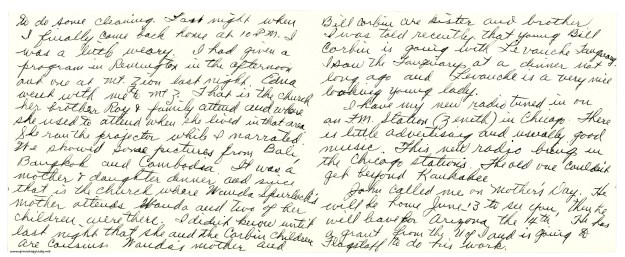 to do some cleaning. Last night when
I finally came back home at 10 P.M. I
was a little weary. I had given a
program in Remington in the afternoon
and one at Mt. Zion last night. Edna
went with me to Mt Z. That is the church
her brother Roy & family attend and where
she used to attend when she lived in that area
She ran the projector while I narrated.
We showed some pictures from Bali,
Bangkok and Cambodia. It was a
mother & daughter dinner, and since
that is the church where Wanda Spurlock's
mother attends Wanda and two of her
children were there. I didn't know until
last night that she and the Corbin children
are cousins Wanda's mother and
Bill Corbin are sister and brother
I was told recently that young Bill
Corbin is going with Levauche
I saw the at a dinner not
long ago and Levauche is a very nice
looking young lady.
I have my new radio tuned in on
an F.M. Station (Zenith) in Chicago. There
is little advertising and usually good
music. This new radio brings in
the Chicago stations. The old one couldn't
get beyond Kankakee
John called me on Mother's Day. He
will be home June 13 to see you, then he
will leave for Arizona the 14th. He has
a grant from the U of I and is going to
Flagstaff to do his work.